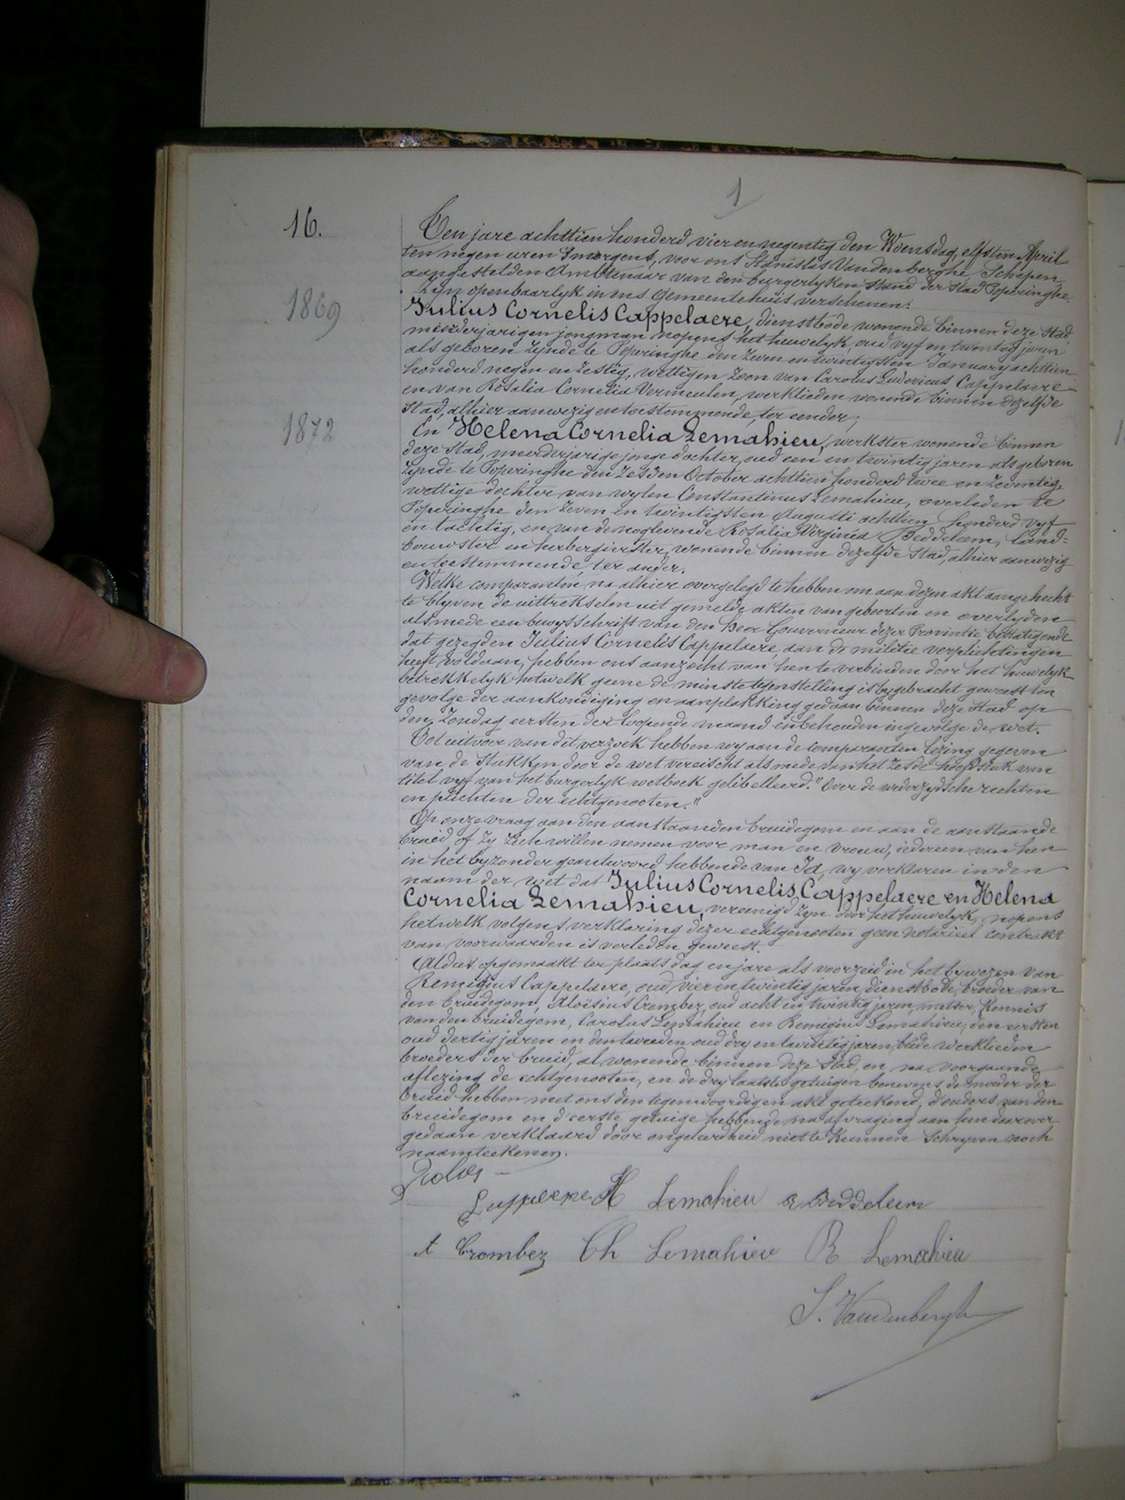 1
16.
Ten jare achttien honderd vier en negentig den Woensdag, elfsten April
ten negen uren s'morgens, voor ons Stanislas Vandenberghe Schepen
aangestelden Ambtenaar van den burgerlyken stand der Stad Poperinghe
zyn openbaarlyk in ons Gemeentehuis verschenen:
1869
Julius Cornelis Cappelaere, dienstbode wonende binnen deze Stad,
meerderjarigen jongman nopens het huwelyk, oud vyf en twintig jaren
als geboren zynde te Poperinghe den zeven en twintigsten January achttien
honderd negen en zestig, wettigen zoon van Carolus Ludovicus Cappelaere
en van Rosalia Cornelia Vermeulen, werklieden wonende binnen dezelfde
Stad, alhier aanwezig en toestemmende, ter eender;
1872
En Helena Cornelia Lemahieu, werkster wonende binnen
deze stad, meerderjarige jonge dochter, oud een en twintig jaren als geboren
zynde te Poperinghe den zesden October achttien honderd twee en zeventig,
wettige dochter van wylen Constantinus Lemahieu, overleden te
Poperinghe den zeven en twintigsten Augusti achttien honderd vyf
en tachtig, en van de nog levende Rosalia Virginia Beddeleem, land=
bouwster en herbergierster, wonende binnen dezelfde Stad, alhier aanwezig
en toestemmende, ter ander.
Welke comparanten na alhier overgelegd te hebben om aan dezen akt aangehecht
te blyven de uittrekselen uit gemelde akten van geboorten en overlyden
alsmede een bewysschrift van den Heer Gouverneur dezer Provintie bestatigende
dat gezegden Julius Cornelis Cappelaere, aan de militie verplichtingen
heeft voldaan, hebben ons aanzocht van hen te verbinden door het huwelyk
betrekkelyk hetwelk geene de minste tegenstelling is bygebracht geweest ten
gevolge der aankondiging en aanplakking gedaan binnen deze Stad op
den Zondag eersten der loopende maand en behouden ingevolge de wet.
Tot uitvoer van dit verzoek hebben wy aan de comparanten lezing gegeven
van de stukken door de wet vereischt alsmede van het zesde hoofdstuk van
titel vyf van het burgerlyk wetboek gelibelleerd: "Over de wederzydsche rechten
en plichten der echtgenooten."
Op onze vraag aan den aanstaanden bruidegom en aan de aanstaande
bruid of zy zich willen nemen voor man en vrouw, iedereen van hen
in het byzonder geantwoord hebbende van Ja, wy verklaren in den
naam der wet dat Julius Cornelis Cappelaere en Helena
Cornelia Lemahieu, vereenigd zyn door het huwelyk, nopens
hetwelk volgens verklaring dezer echtgenooten geen notarieel contrakt
van voorwaarden is verleden geweest.
Aldus opgemaakt ter plaats dag en jare als voorzeid in het bywezen van
Remigius Cappelaere, oud vier en twintig jaren, dienstbode, broeder van
den bruidegom, Aloïsius Crombez, oud acht en twintig jaren, metser, kennis
van den bruidegom, Carolus Lemahieu en Remigius Lemahieu, den eersten
oud dertig jaren en den tweeden oud dry en twintig jaren, beide werklieden
broeders der bruid, al wonende binnen deze Stad, en na voorgaande
aflezing de echtgenooten, en de dry laatste getuigen benevens de moeder der
bruid hebben met ons den tegenwoordigen akt geteekend, d'ouders van den
bruidegom en d'eerste getuige hebbende na afvraging aan hun daarover
gedaan verklaard door ongeleerdheid niet te kunnen schryven noch
naamteekenen.
Cappelaere H Lemahieu R Beddeleem
A Crombez Ch Lemahieu R Lemahieu
S. Vandenberghe